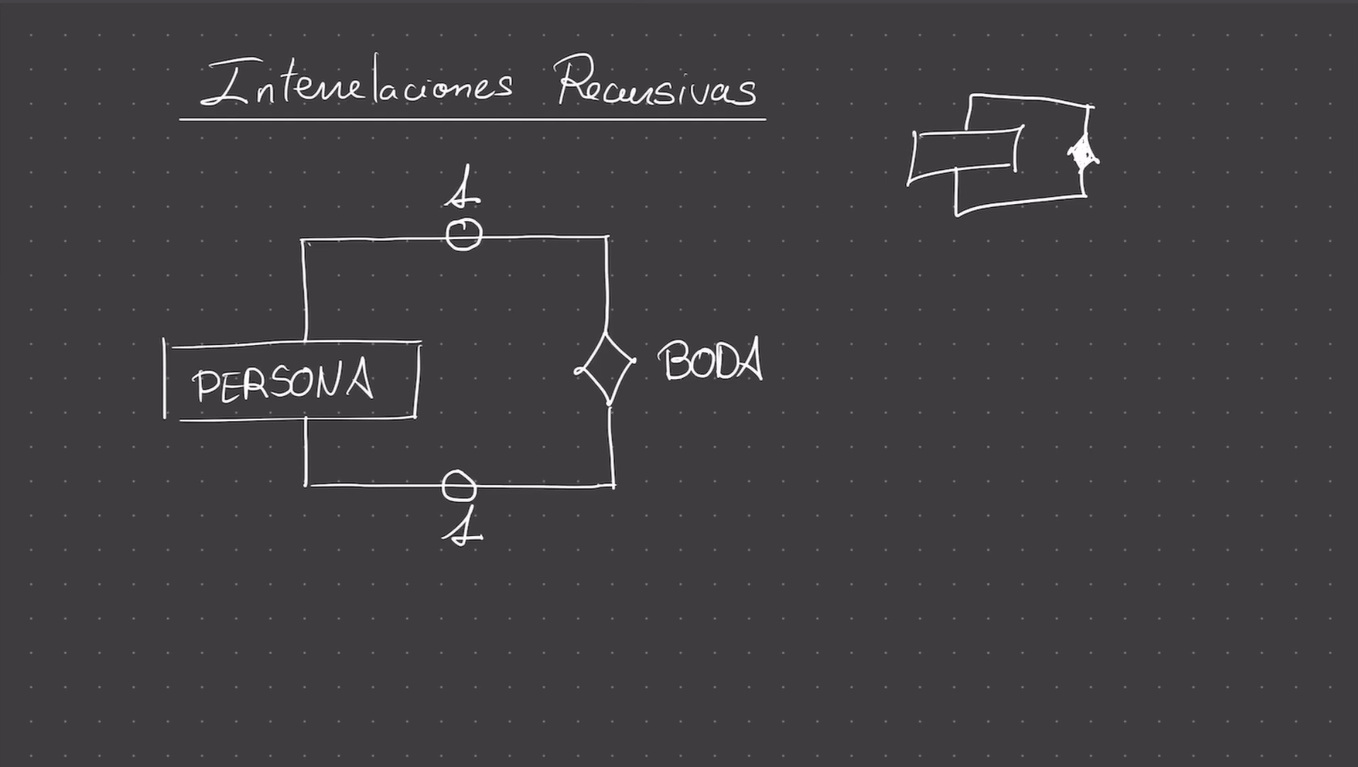 Interrelaciones Recursivas
1
PERSONA
BODA
1